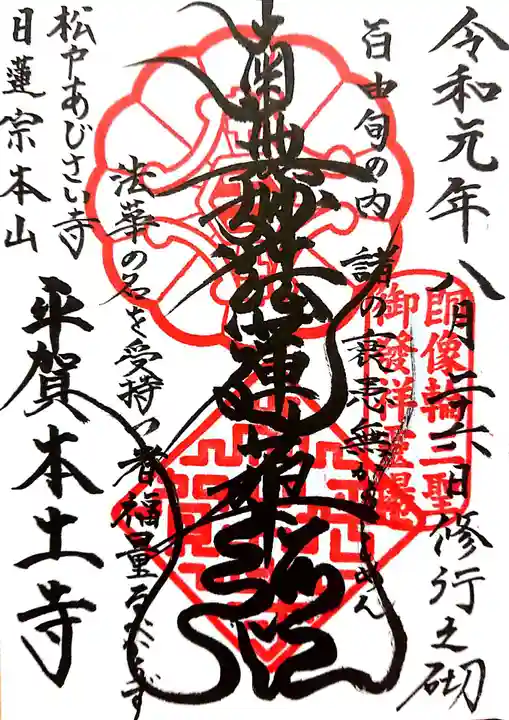 令和元年八月二十六日修行之砌
百由旬の内 諸の衰患無からしめん
南無妙法蓮華経
法華の名を受持つ者福量るべからず
松戸あじさい寺
日蓮宗本山
平賀本土寺
御發祥霊場